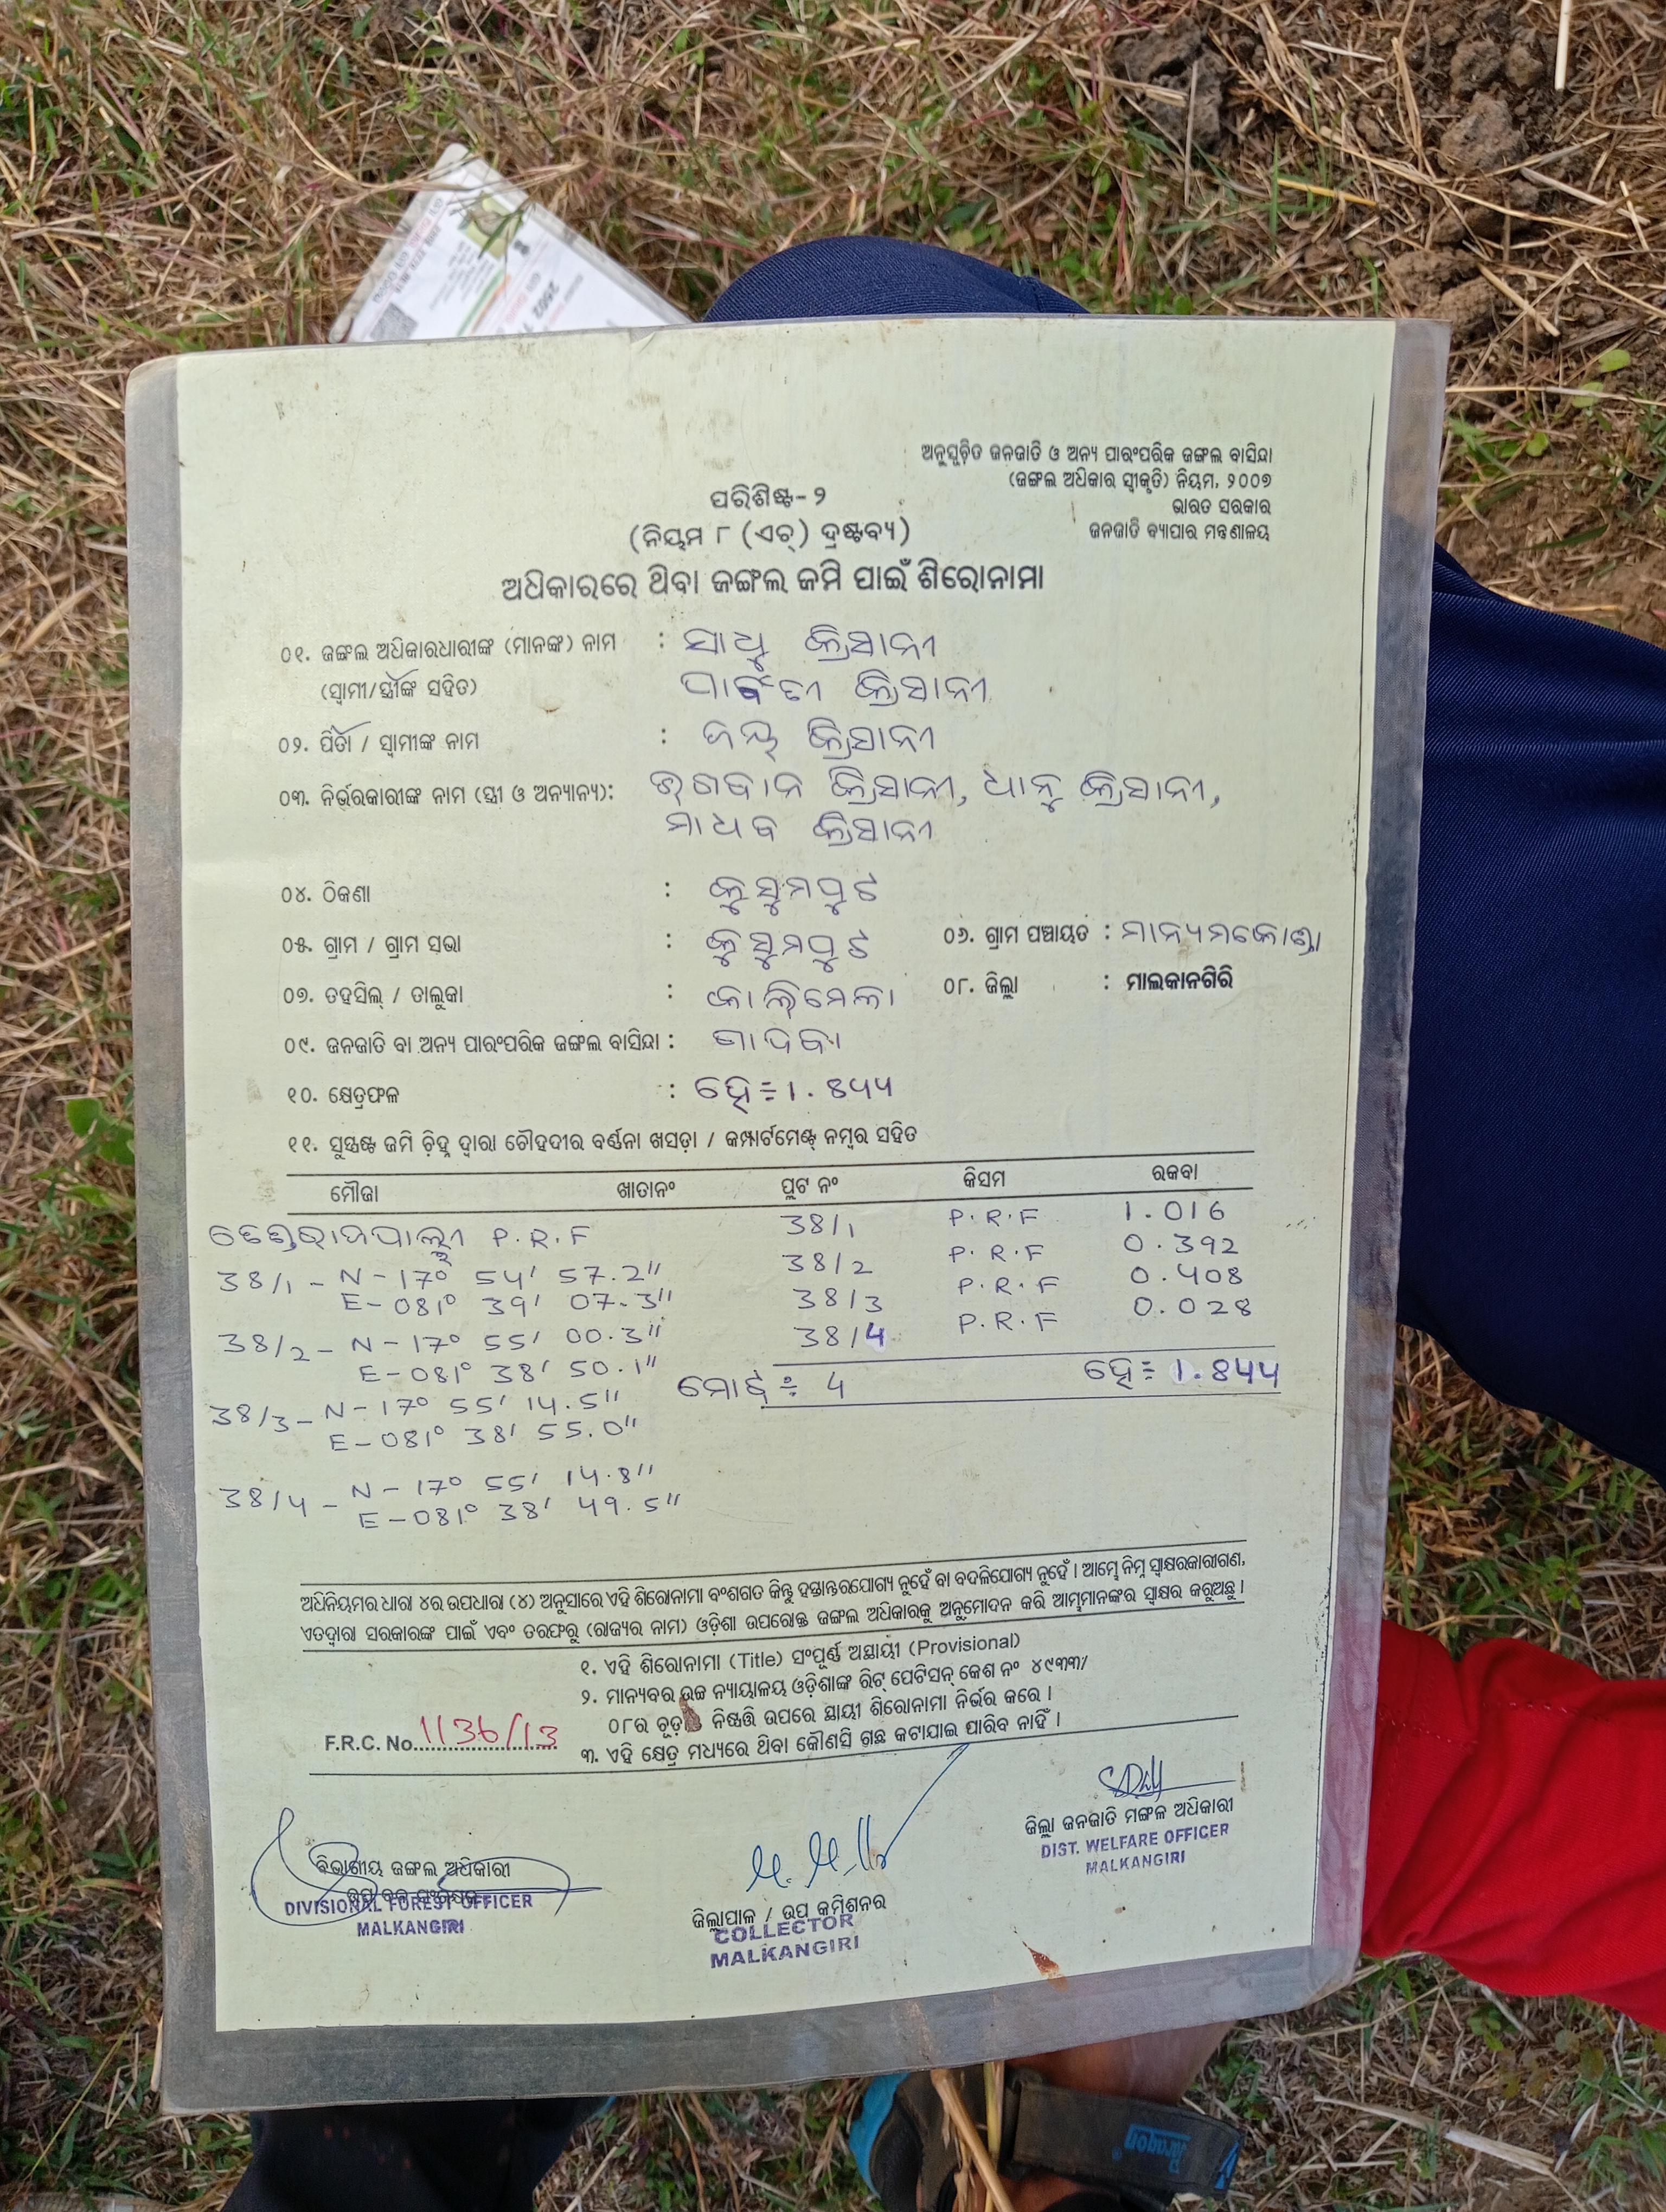 ଅନୁସୂଚିତ ଜନଜାତି ଓ ଅନ୍ୟ ପାରଂପରିକ ଜଙ୍ଗଲ ବାସିନ୍ଦା
(ଜଙ୍ଗଲ ଅଧିକାର ସ୍ୱୀକୃତି) ନିୟମ, ୨୦୦୭
ଭାରତ ସରକାର
ଜନଜାତି ବ୍ୟାପାର ମନ୍ତ୍ରଣାଳୟ
ପରିଶିଷ୍ଟ- ୨
(ନିୟମ ୮ (ଏଚ୍) ଦ୍ରଷ୍ଟବ୍ୟ)
ଅଧିକାରରେ ଥିବା ଜଙ୍ଗଲ ଜମି ପାଇଁ ଶିରୋନାମା
୦୧. ଜଙ୍ଗଲ ଅଧିକାରଧାରୀଙ୍କ (ମାନଙ୍କ) ନାମ : ସାଧୁ କ୍ରିସାନୀ
(ସ୍ୱାମୀ/ସ୍ତ୍ରୀଙ୍କ ସହିତ) ପାର୍ବତୀ କ୍ରିସାନୀ
୦୨. ପିତା / ସ୍ୱାମୀଙ୍କ ନାମ : କ୍ରିସାନୀ
୦୩. ନିର୍ଭରକାରୀଙ୍କ ନାମ (ସ୍ତ୍ରୀ ଓ ଅନ୍ୟାନ୍ୟ): ଭଗବାନ କ୍ରିସାନୀ, ଧାନୁ କ୍ରିସାନୀ,
ମାଧବ କ୍ରିସାନୀ
୦୪. ଠିକଣା : କୁସୁମପୁଟ
୦୫. ଗ୍ରାମ / ଗ୍ରାମ ସଭା : କୁସୁମପୁଟ ୦୬. ଗ୍ରାମ ପଞ୍ଚାୟତ : ମାନ୍ୟମକୋଣ୍ଡା
୦୭. ତହସିଲ୍ / ତାଲୁକା : କାଲିମେଳା ୦୮. ଜିଲ୍ଲା : ମାଲକାନଗିରି
୦୯. ଜନଜାତି ବା ଅନ୍ୟ ପାରଂପରିକ ଜଙ୍ଗଲ ବାସିନ୍ଦା : ଗାଦବା
୧୦. କ୍ଷେତ୍ରଫଳ : ହେ÷1.844
୧୧. ସୁସ୍ପଷ୍ଟ ଜମି ଚିହ୍ନ ଦ୍ୱାରା ଚୌହଦୀର ବର୍ଣ୍ଣନା ଖସଡ଼ା / କମ୍ପାର୍ଟମେଣ୍ଟ୍ ନମ୍ବର ସହିତ
ମୌଜା ଖାତାନଂ ପ୍ଲଟ ନଂ କିସମ ରକବା
P.R.F 38/1 P.R.F 1.016
38/1 - N-17° 54' 57.2" 38/2 P.R.F 0.392
E-081° 39' 07.3" 38/3 P.R.F 0.408
38/2 - N-17° 55' 00.3" 38/4 P.R.F 0.028
E-081° 38' 50.1" ମୋଟ÷ 4 ହେ÷ 1.844
38/3 - N-17° 55' 14.5"
E-081° 38' 55.0"
38/4 - N-17° 55' 14.8"
E-081° 38' 49.5"
ଅଧିନିୟମର ଧାରା ୪ର ଉପଧାରା (୪) ଅନୁସାରେ ଏହି ଶିରୋନାମା ବଂଶଗତ କିନ୍ତୁ ହସ୍ତାନ୍ତରଯୋଗ୍ୟ ନୁହେଁ ବା ବଦଳିଯୋଗ୍ୟ ନୁହେଁ । ଆମ୍ଭେ ନିମ୍ନ ସ୍ୱାକ୍ଷରକାରୀଗଣ,
ଏତଦ୍ୱାରା ସରକାରଙ୍କ ପାଇଁ ଏବଂ ତରଫରୁ (ରାଜ୍ୟର ନାମ) ଓଡ଼ିଶା ଉପରୋକ୍ତ ଜଙ୍ଗଲ ଅଧିକାରକୁ ଅନୁମୋଦନ କରି ଆମ୍ଭମାନଙ୍କର ସ୍ୱାକ୍ଷର କରୁଅଛୁ ।
୧. ଏହି ଶିରୋନାମା (Title) ସଂପୂର୍ଣ୍ଣ ଅସ୍ଥାୟୀ (Provisional)
୨. ମାନ୍ୟବର ଉଚ୍ଚ ନ୍ୟାୟାଳୟ ଓଡ଼ିଶାଙ୍କ ରିଟ୍ ପେଟିସନ୍ କେଶ ନଂ ୪୯୩୩/
୦୮ର ଚୂଡ଼ାନ୍ତ ନିଷ୍ପତ୍ତି ଉପରେ ସ୍ଥାୟୀ ଶିରୋନାମା ନିର୍ଭର କରେ ।
୩. ଏହି କ୍ଷେତ୍ର ମଧ୍ୟରେ ଥିବା କୌଣସି ଗଛ କଟାଯାଇ ପାରିବ ନାହିଁ ।
F.R.C. No. 1136/13
ବିଭାଗୀୟ ଜଙ୍ଗଲ ଅଧିକାରୀ
DIVISIONAL FOREST OFFICER
MALKANGIRI
ଜିଲ୍ଲାପାଳ / ଉପ କମିଶନର
COLLECTOR
MALKANGIRI
ଜିଲ୍ଲା ଜନଜାତି ମଙ୍ଗଳ ଅଧିକାରୀ
DIST. WELFARE OFFICER
MALKANGIRI
Paragon